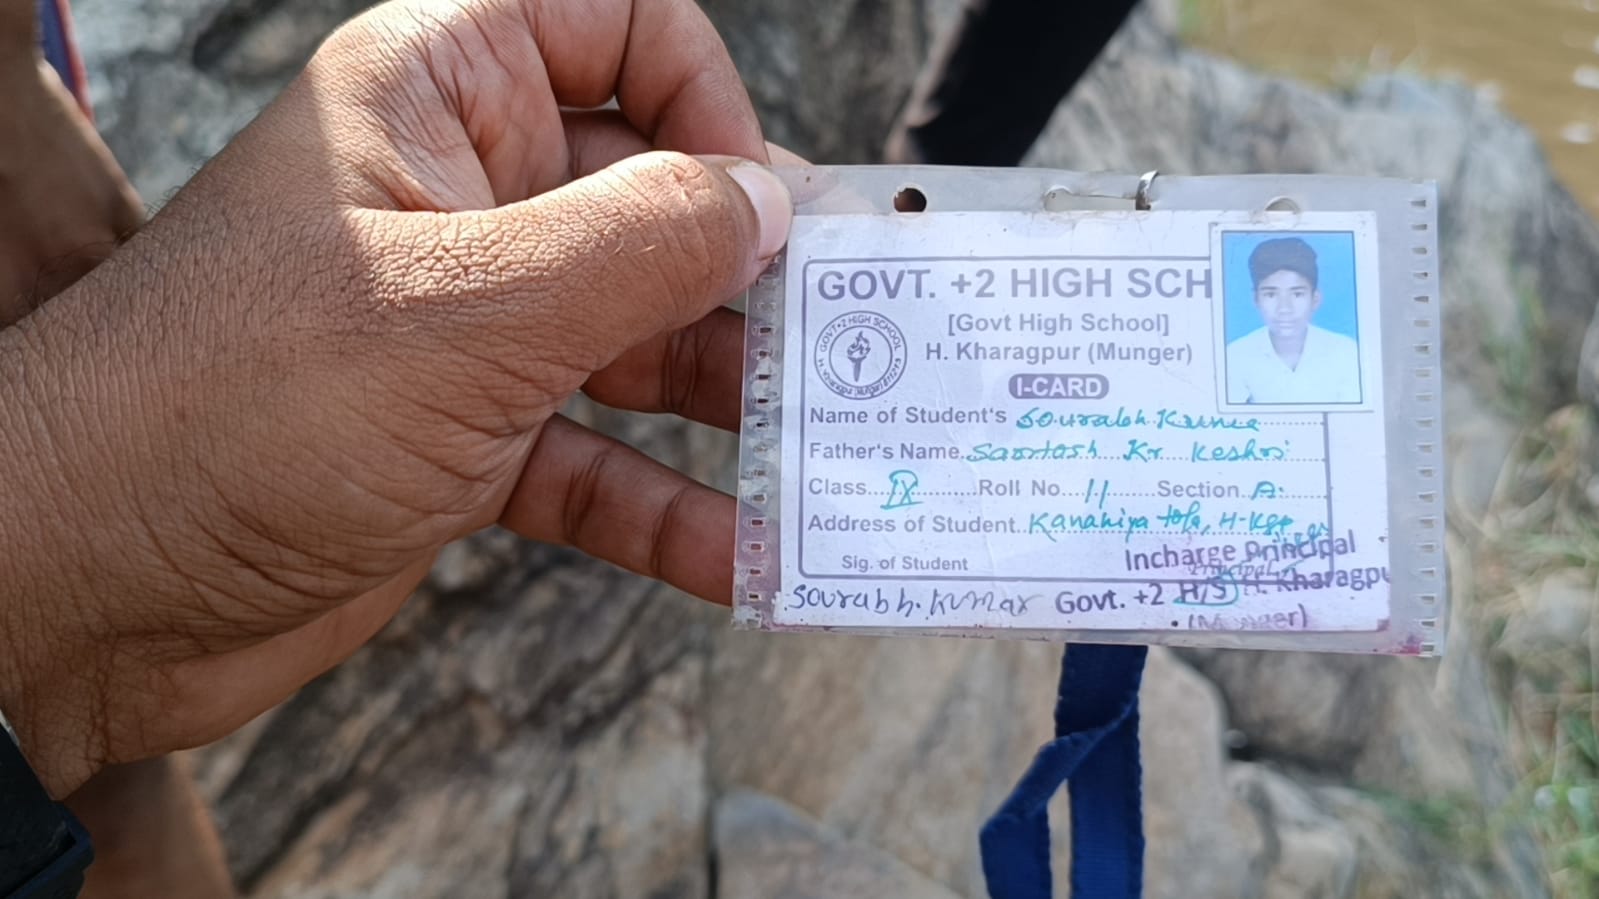 GOVT. +2 HIGH SCH
[Govt High School]
H. Kharagpur (Munger)
GOVT+2 HIGH SCHOOL
H. Kharagpur (Munger)
I-CARD
Name of Student's Sourabh Kumar
Father's Name Santosh Kr Keshri
Class IX Roll No. 11 Section A
Address of Student Kanahiya tola, H-Kgp
Sig. of Student
Incharge Principal
Principal
Sourabh. Kumar
Govt. +2 H/S H. Kharagpu
(Munger)